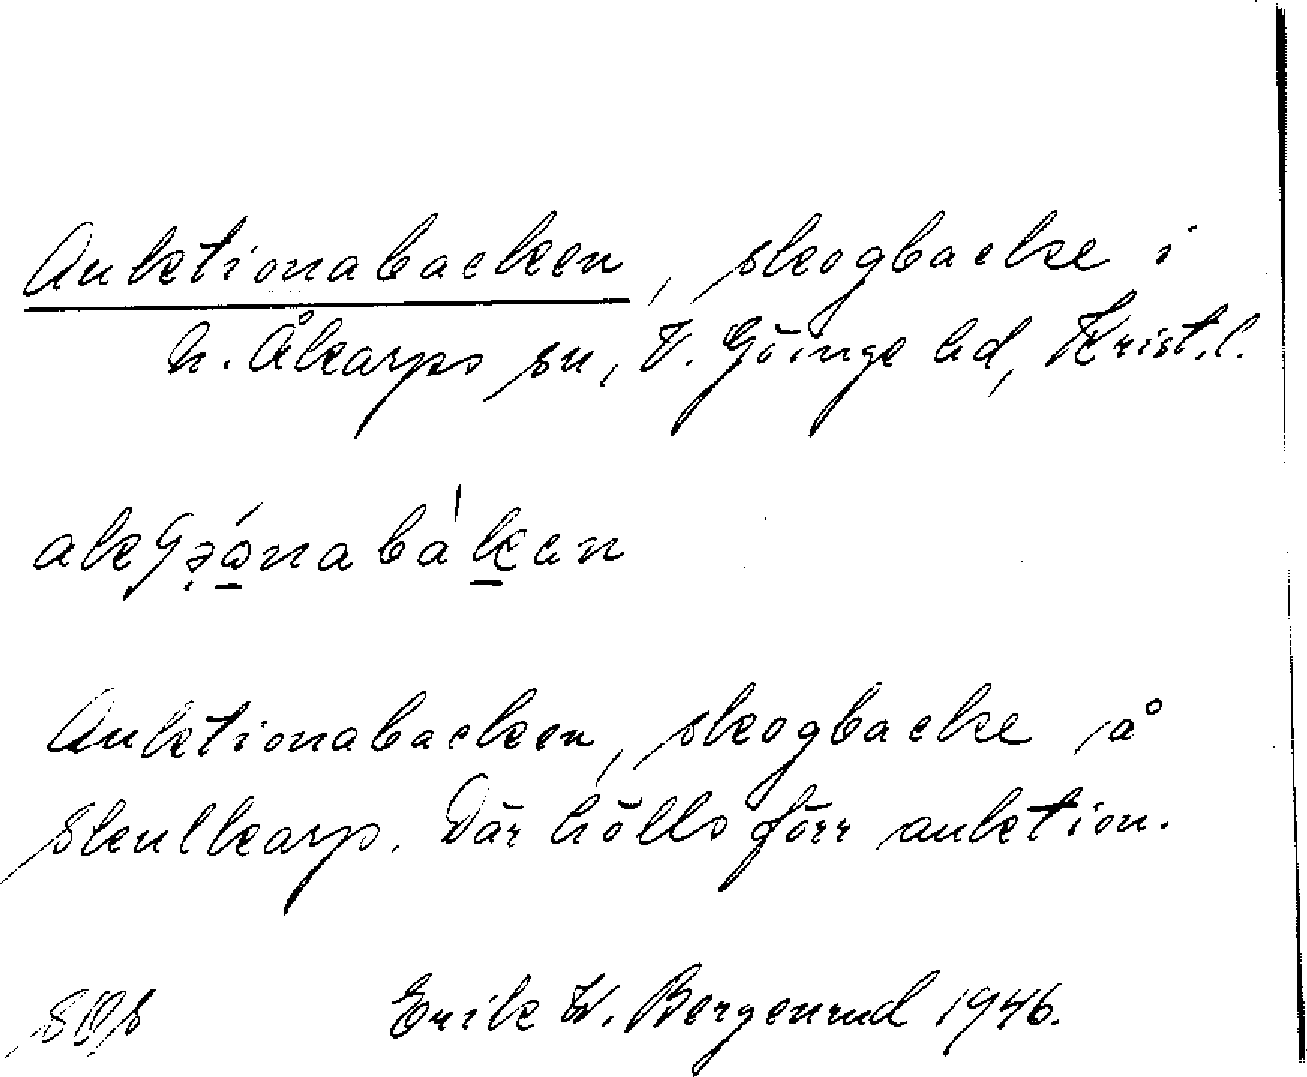 Auktionabacken, skogbacke i
N. Åkarps sn, V. Göinge hd, Krist. l.
Auktionabacken, skogbacke å
Skulkarp. Där hölls förr auktion.
Erik W. Bergenrud 1946.